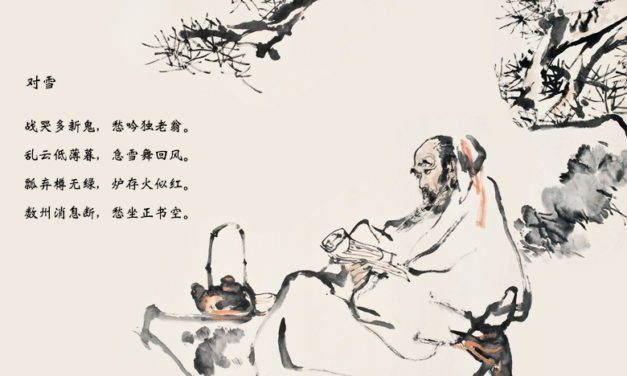 对雪
战哭多新鬼，愁吟独老翁。
乱云低薄暮，急雪舞回风。
瓢弃樽无绿，炉存火似红。
数州消息断，愁坐正书空。